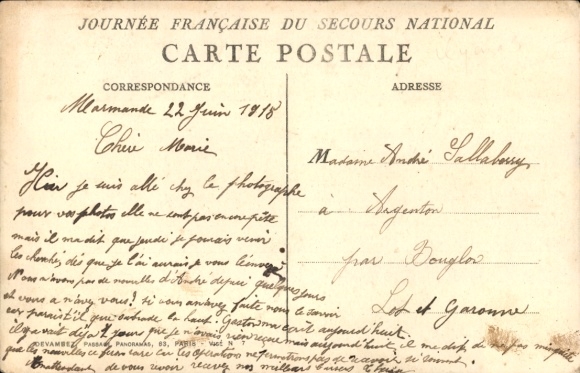 JOURNÉE FRANÇAISE DU SECOURS NATIONAL
CARTE POSTALE
CORRESPONDANCE
Marmande 22 Juin 1918
Chère Marie
Hier je suis allé chez le photographe
pour vos photos elle ne sont pas encore prête
mais il ma dit que jeudi je pourais venir
les cherchez dès que je l'ai aurais je vous l'envoye
Nous n'avons pas de nouvelles d'André depuis quelques jours
et vous a n'avez vous? si vous an avez faite nous le savoir
car parait-il que là haut. Gaston ma écrit aujourd'hui
il y avait déja jours que je n'avais rien reçue mais aujourd'hui il me dit de ne pas
que les nouvelles ce car les opérations ne pas de
En attendant de vous revoir recevez nos meilleurs baisers
ADRESSE
Madame André Sallaberry
à Argenton
par Bouglon
Lot et Garonne
DEVAMBEZ, PASSAGE PANORAMAS, 63, PARIS - VISÉ N° 7